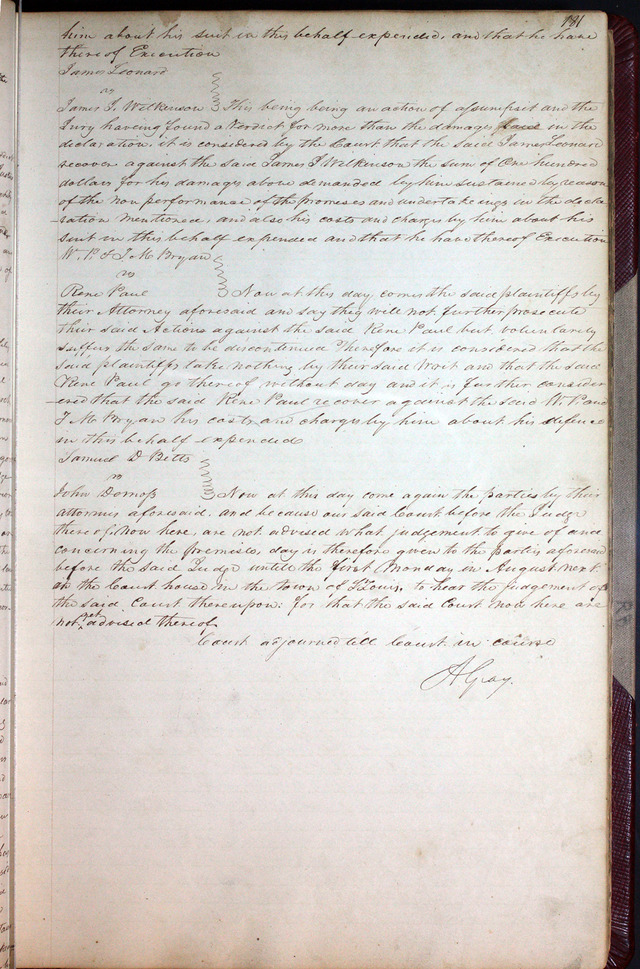 181
him about his suit in this behalf expended, and that he have
thereof Execution
James Leonard
vs
James J. Wilkinson This being being an action of assumpsit and the
Jury having found a Verdict for more than the damages laid in the
declaration. it is considered by the Court that the said James Leonard
recover against the said James J Wilkinson the sum of One hundred
dollars for his damages above demanded by him sustained by reason
of the non performance of the promises and undertakings in the decla-
-ration mentioned, and also his costs and charges by him about his
suit in this behalf expended and that he have thereof Execution
W. P. & J. M. Bryan
vs
Rene Paul Now at this day, comes the said plaintiffs by
their Attorney aforesaid and say they will not further prosecute
their said Actions against the said Rene Paul but voluntarily
suffer the same to be discontinued Therefore it is considered that the
said plaintiffs take nothing by their said Writ and that the said
Rene Paul go thereof without day and it is further consider
-ered that the said Rene Paul recover against the said W. P. and
J. M. Bryan his costs and charges by him about his defence
in this behalf expended
Samuel D Betts
vs
John Now at this day come again the parties by their
attornies aforesaid. and because our said Court before the Judge
thereof, now here, are not advised what judgement to give of and
concerning the premises, day is therefore given to the parties aforesaid
before the said Judge untill the first Monday in August next
at the Court house in the town of St Louis, to hear the judgement of
the said Court thereupon: for that the said Court now here are
not yet advised thereof
Court adjourned till Court in course
A Gray.